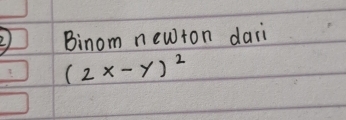 2
Binom newton dari
(2x-y)²